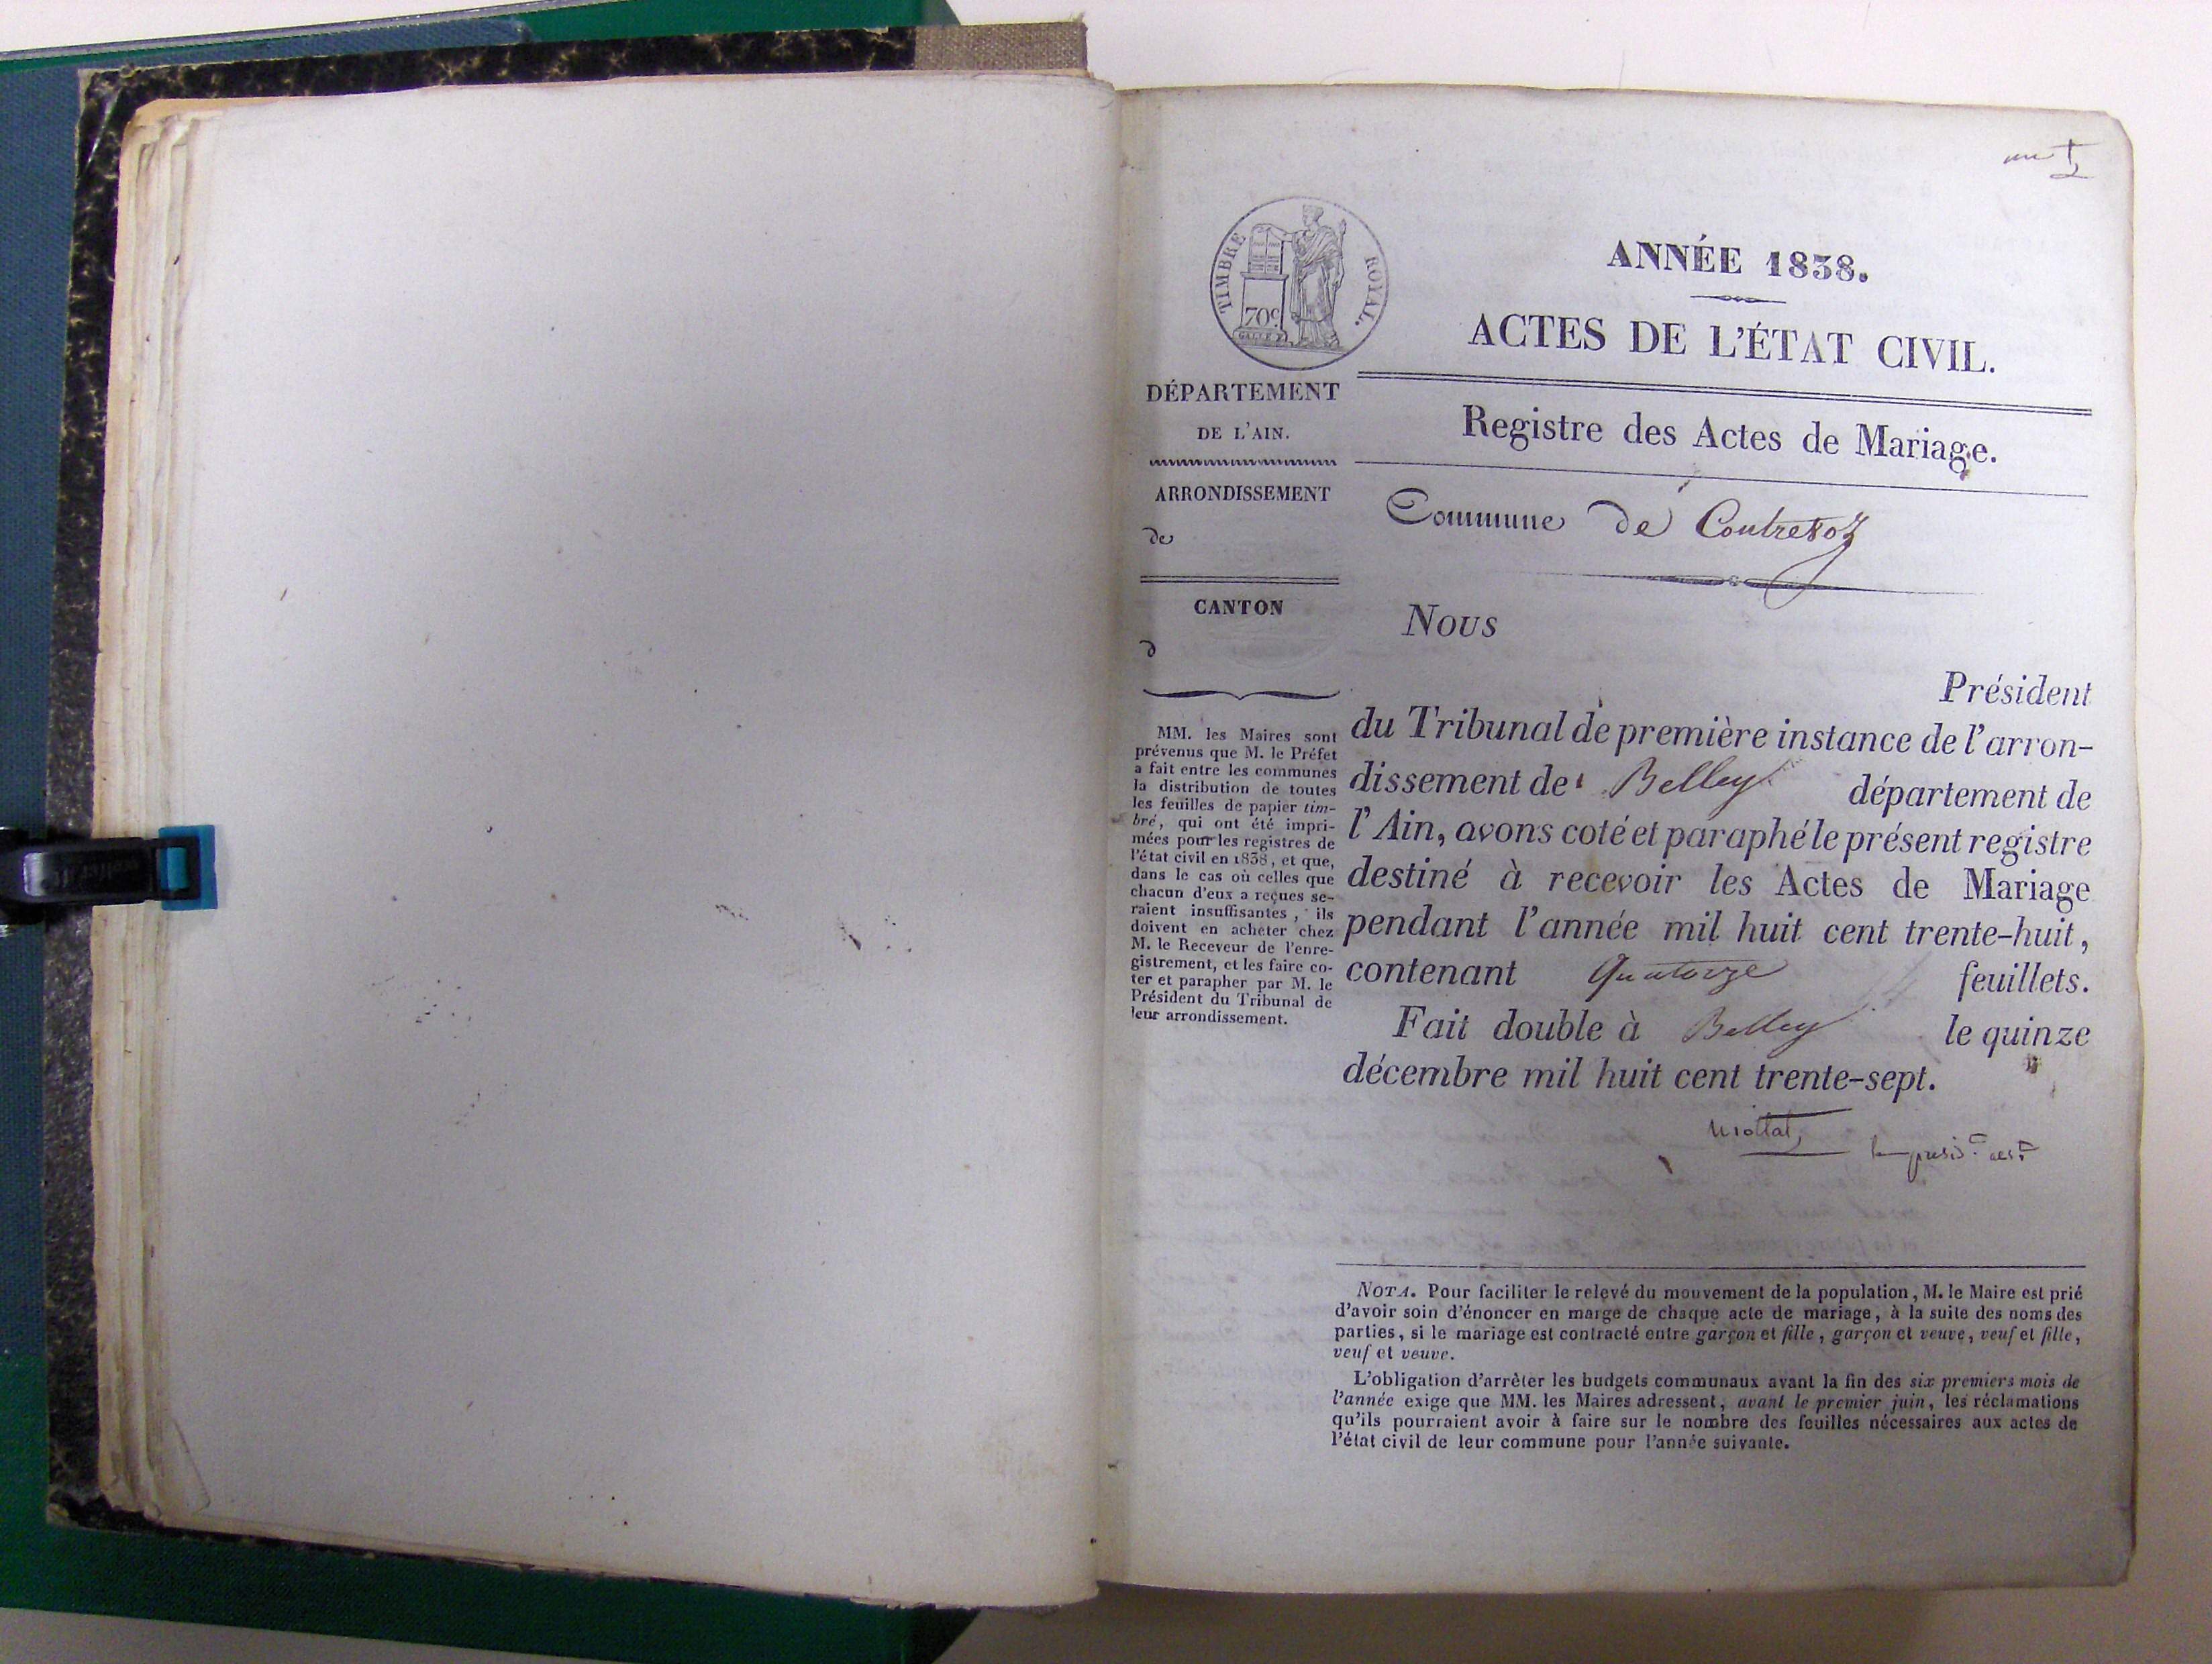 ANNÉE 1838.
ACTES DE L'ÉTAT CIVIL.
TIMBRE ROYAL.
70c
DÉPARTEMENT
DE L'AIN.
ARRONDISSEMENT
de
CANTON
d
MM. les Maires sont
prévenus que M. le Préfet
a fait entre les communes
la distribution de toutes
les feuilles de papier tim-
bré, qui ont été impri-
mées pour les registres de
l'état civil en 1838, et que,
dans le cas où celles que
chacun d'eux a reçues se-
raient insuffisantes, ils
doivent en acheter chez
M. le Receveur de l'enre-
gistrement, et les faire co-
ter et parapher par M. le
Président du Tribunal de
leur arrondissement.
Registre des Actes de Mariage.
Commune de Contrevoz
Nous
Président
du Tribunal de première instance de l'arron-
dissement de Belley département de
l'Ain, avons coté et paraphé le présent registre
destiné à recevoir les Actes de Mariage
pendant l'année mil huit cent trente-huit,
contenant Quatorze feuillets.
Fait double à Belley le quinze
décembre mil huit cent trente-sept.
NOTA. Pour faciliter le relevé du mouvement de la population, M. le Maire est prié
d'avoir soin d'énoncer en marge de chaque acte de mariage, à la suite des noms des
parties, si le mariage est contracté entre garçon et fille, garçon et veuve, veuf et fille,
veuf et veuve.
L'obligation d'arrêter les budgets communaux avant la fin des six premiers mois de
l'année exige que MM. les Maires adressent, avant le premier juin, les réclamations
qu'ils pourraient avoir à faire sur le nombre des feuilles nécessaires aux actes de
l'état civil de leur commune pour l'année suivante.